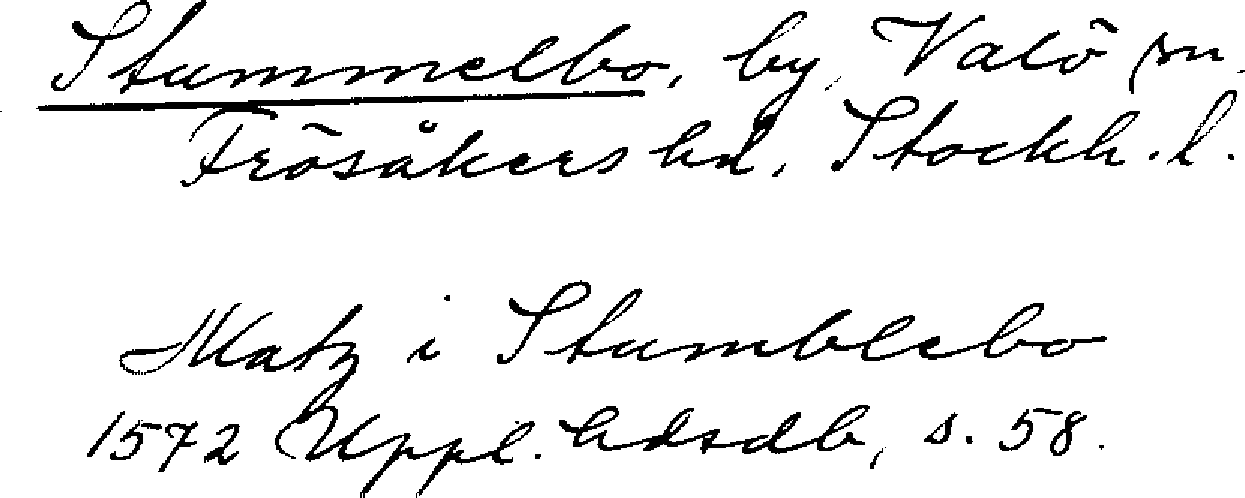 Stummelbo, by, Valö sn.
Frösåkers hd, Stockh. l.
Matz i Stumblebo
1572 Uppl. hdsdb, s. 58.